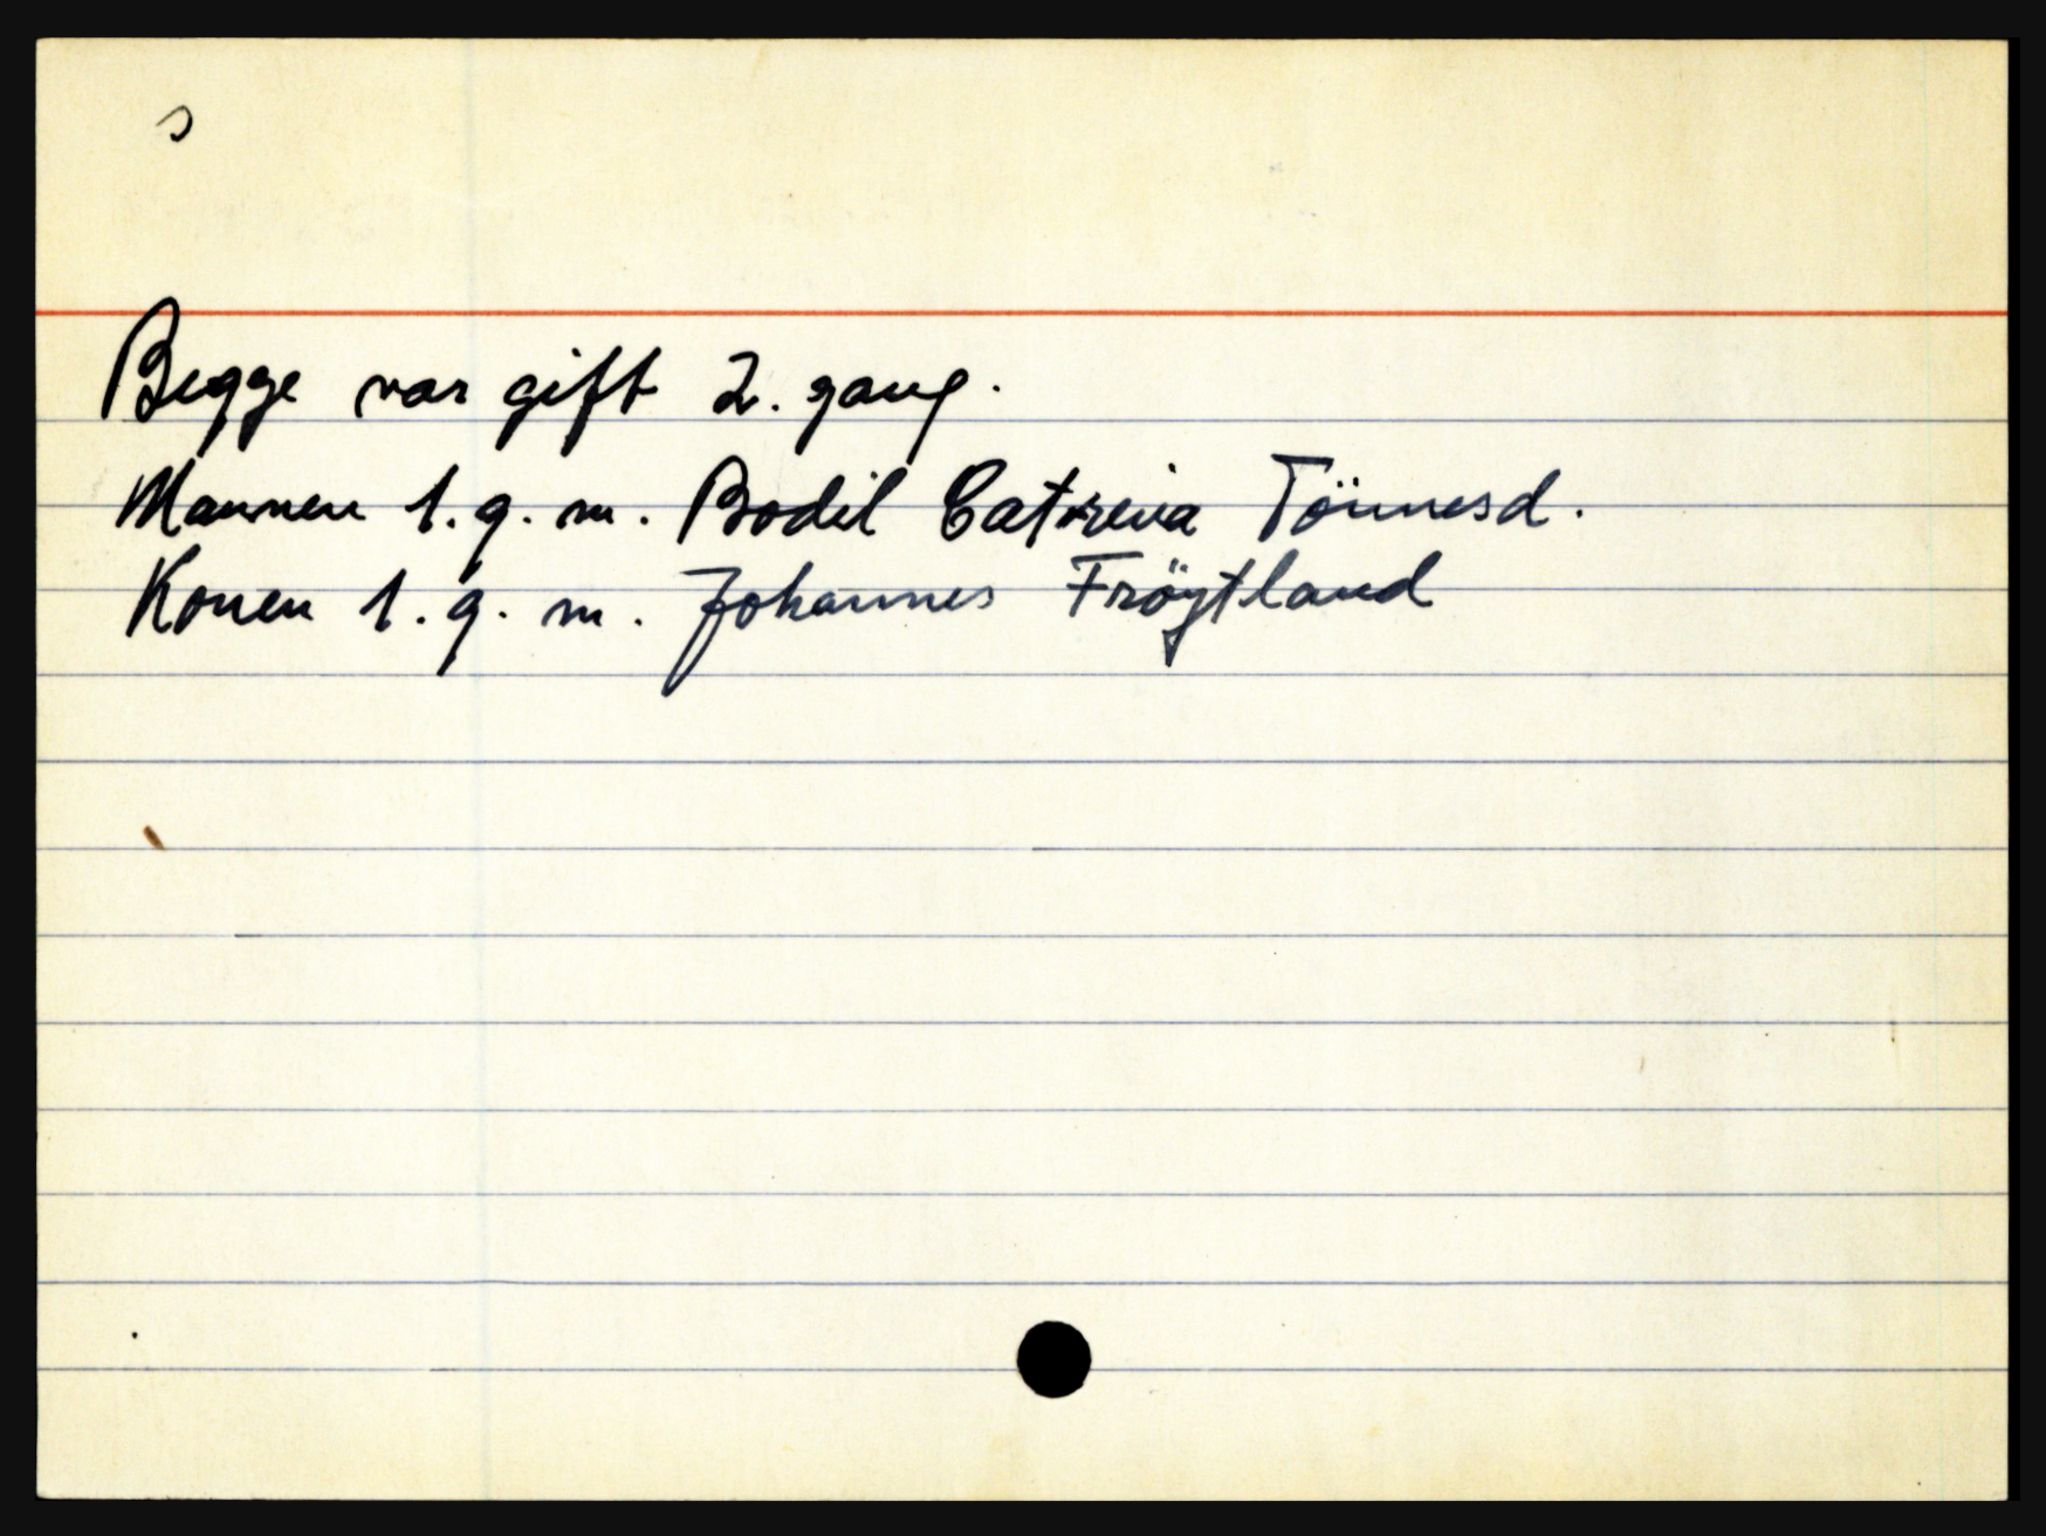 Begge var gift 2. gang.
Mannen 1. g. m. Bodil Catreina Tönnesd.
Konen 1. g. m. Johannes Fröytland